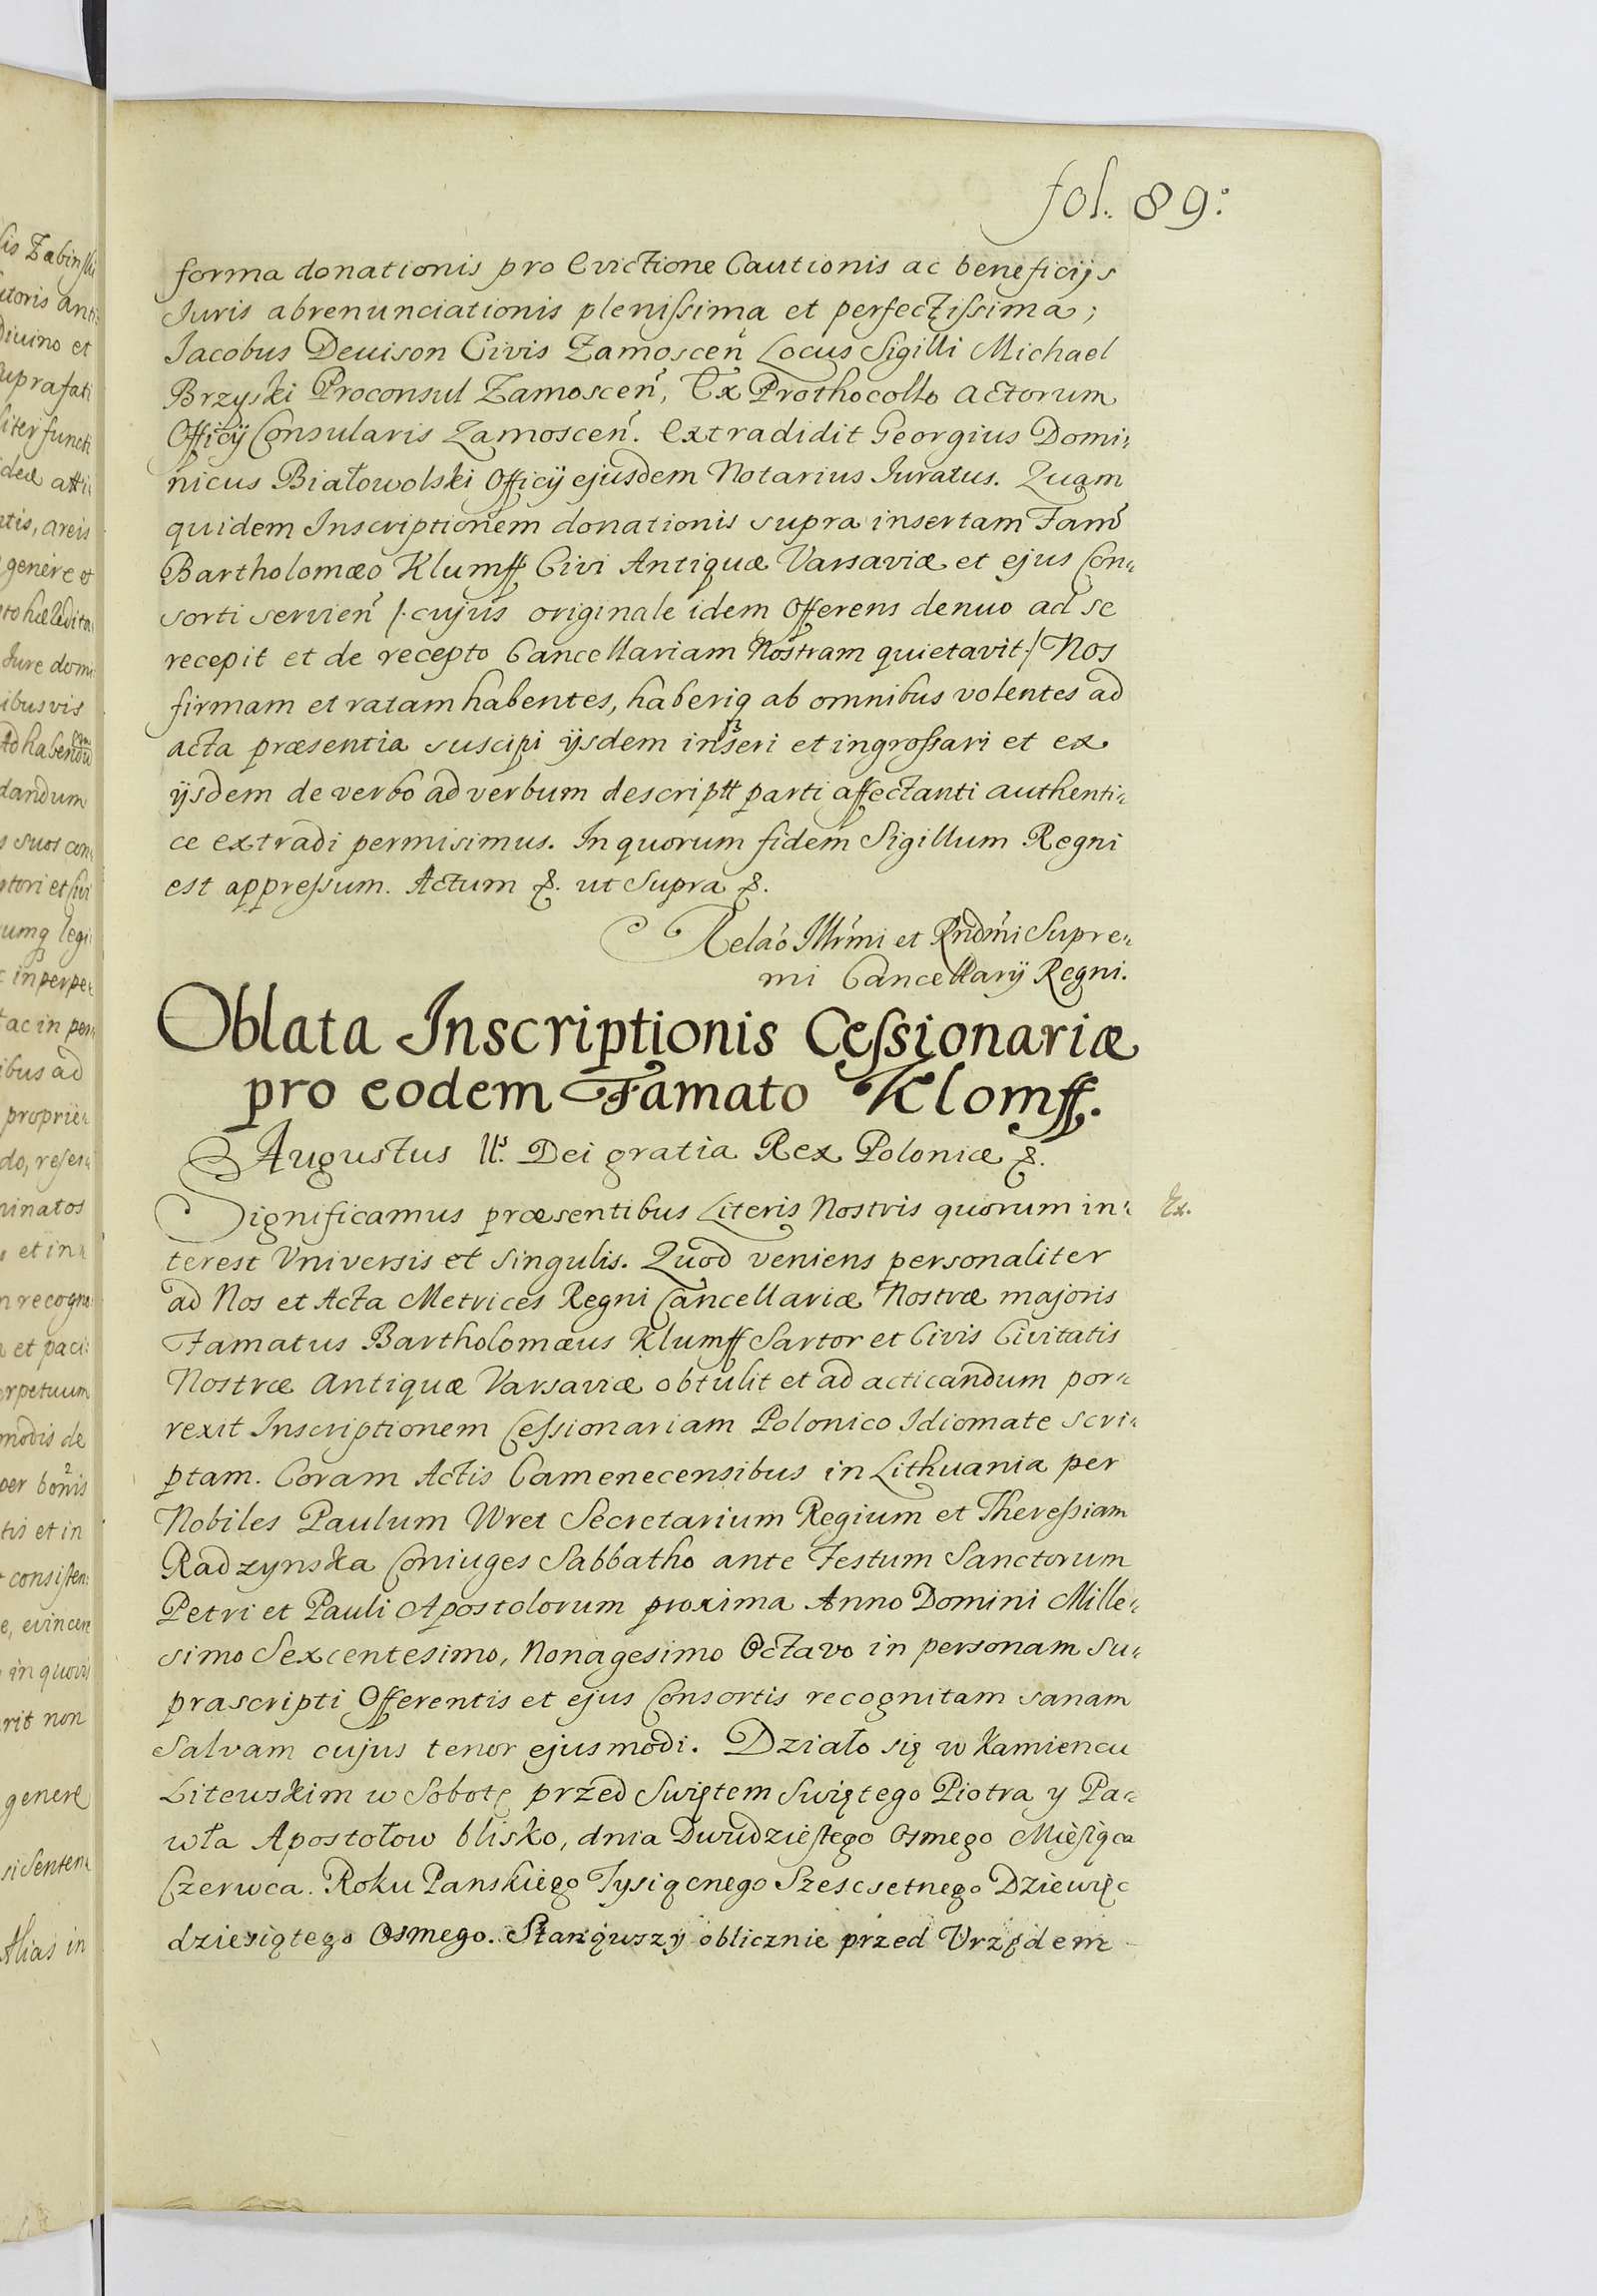 fol. 89:
forma donationis pro Evictione Cautionis ac beneficijs
Juris abrenunciationis plenissima et perfectissima;
Jacobus Deuison Civis Zamoscen Locus Sigilli Michael
Brzyski Proconsul Zamoscen, Ex Prothocollo Actorum
Officij Consularis Zamoscen. Extradidit Georgius Domi:
nicus Białowolski Officij ejusdem Notarius Juratus. Quam
quidem Inscriptionem donationis supra insertam Fam
Bartholomæo Klumff Civi Antiquæ Varsaviæ et ejus Con:
sorti servien /: cujus originale idem Offerens denuo ad se
recepit et de recepto Cancellariam Nostram quietavit :/ Nos
firmam et ratam habentes, haberiq ab omnibus volentes ad
acta præsentia suscipi ijsdem inseri et ingrossari et ex
ijsdem de verbo ad verbum descriptt parti affectanti authenti:
ce extradi permisimus. In quorum fidem Sigillum Regni
est appressum. Actum &. ut Supra &.
Relao Illrmi et Rndmi Supre:
mi Cancellarij Regni.
Oblata Inscriptionis Cessionariæ
pro eodem Famato Klomff.
Augustus IIs. Dei gratia Rex Poloniæ &.
Significamus præsentibus Literis Nostris quorum in: Ex.
terest Vniversis et Singulis. Quod veniens personaliter
ad Nos et Acta Metrices Regni Cancellariæ Nostræ majoris
Famatus Bartholomæus Klumff Sartor et Civis Civitatis
Nostræ Antiquæ Varsaviæ obtulit et ad acticandum por:
rexit Inscriptionem Cessionariam Polonico Idiomate scri:
ptam. Coram Actis Camenecensibus in Lithuania per
Nobiles Paulum Wret Secretarium Regium et Theressiam
Radzynska Coniuges Sabbatho ante Festum Sanctorum
Petri et Pauli Apostolorum proxima Anno Domini Mille:
simo Sexcentesimo, Nonagesimo Octavo in personam Su:
prascripti Offerentis et ejus Consortis recognitam sanam
Salvam cujus tenor ejusmodi. Działo się w Kamiencu
Litewskim w Sobotę przed Swiętem Swiętego Piotra y Pa:
wła Apostołow blisko, dnia Dwudziestego Osmego Miesiąca
Czerwca. Roku Panskiego Tysiącnego Szescsetnego Dziewięc
dziesiątego Osmego. Stanąwszy oblicznie przed Vrzędem